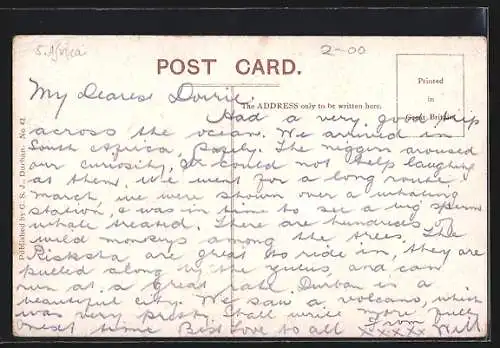 S. Africa
2-00
POST CARD.
Printed
in
Great Britain
The ADDRESS only to be written here.
Published by G. S. J., Durban. No. 42
My Dearest Dorrie.
Had a very good trip
across the ocean. We arrived in
South Africa, safely. The niggers aroused
our curiosity, I could not help laughing
at them. We went for a long route
march, we were shown over a whaling
station, I was in time to see a big sperm
whale treated. There are hundreds of
wild monkeys among the trees. The
Ricksha are great to ride in, they are
pulled along by the Zulus, and can
run at a great rate. Durban is a
beautiful city. We saw a volcano, which
was very pretty. Shall write more fully
next time Best love to all From
xxxxx Will